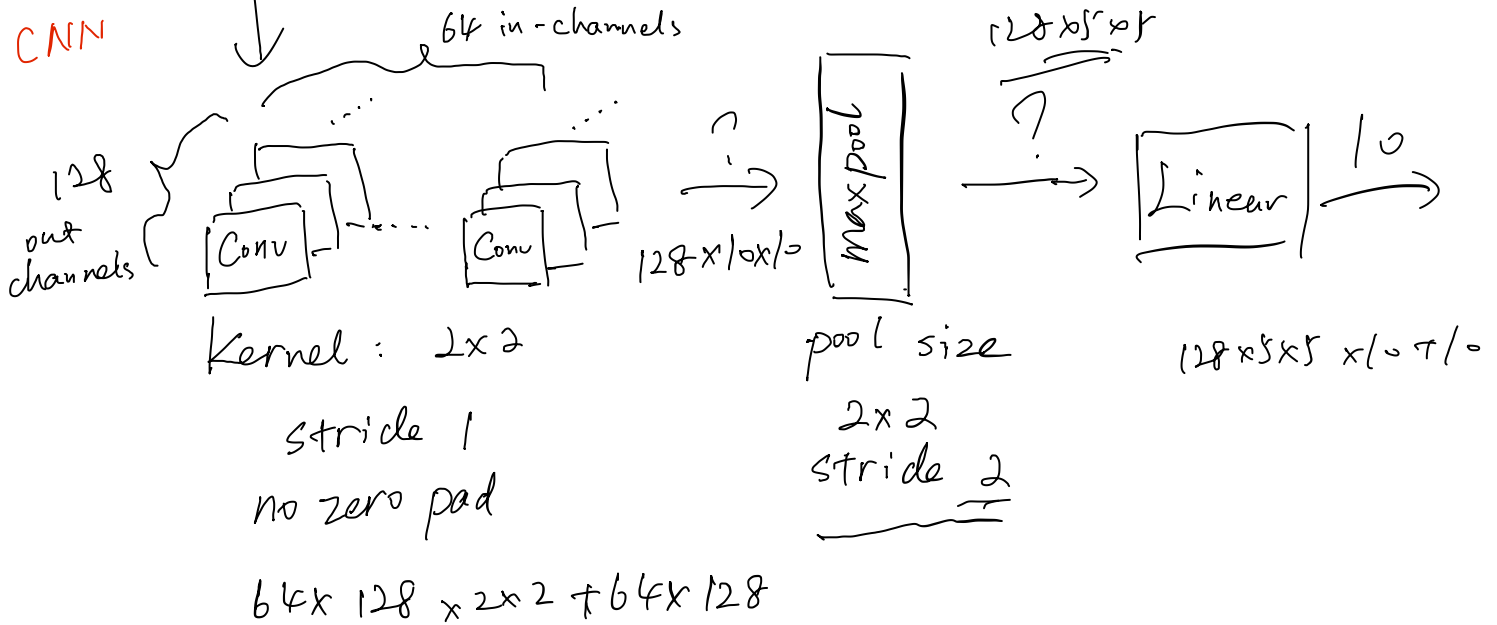 CNN
64 in-channels
128
out
channels
Conv
Conv
?
128x10x10
maxpool
128x5x5
?
Linear
10
Kernel: 2x2
stride 1
no zero pad
64x128x2x2+64x128
pool size
2x2
stride 2
128x5x5x10+10